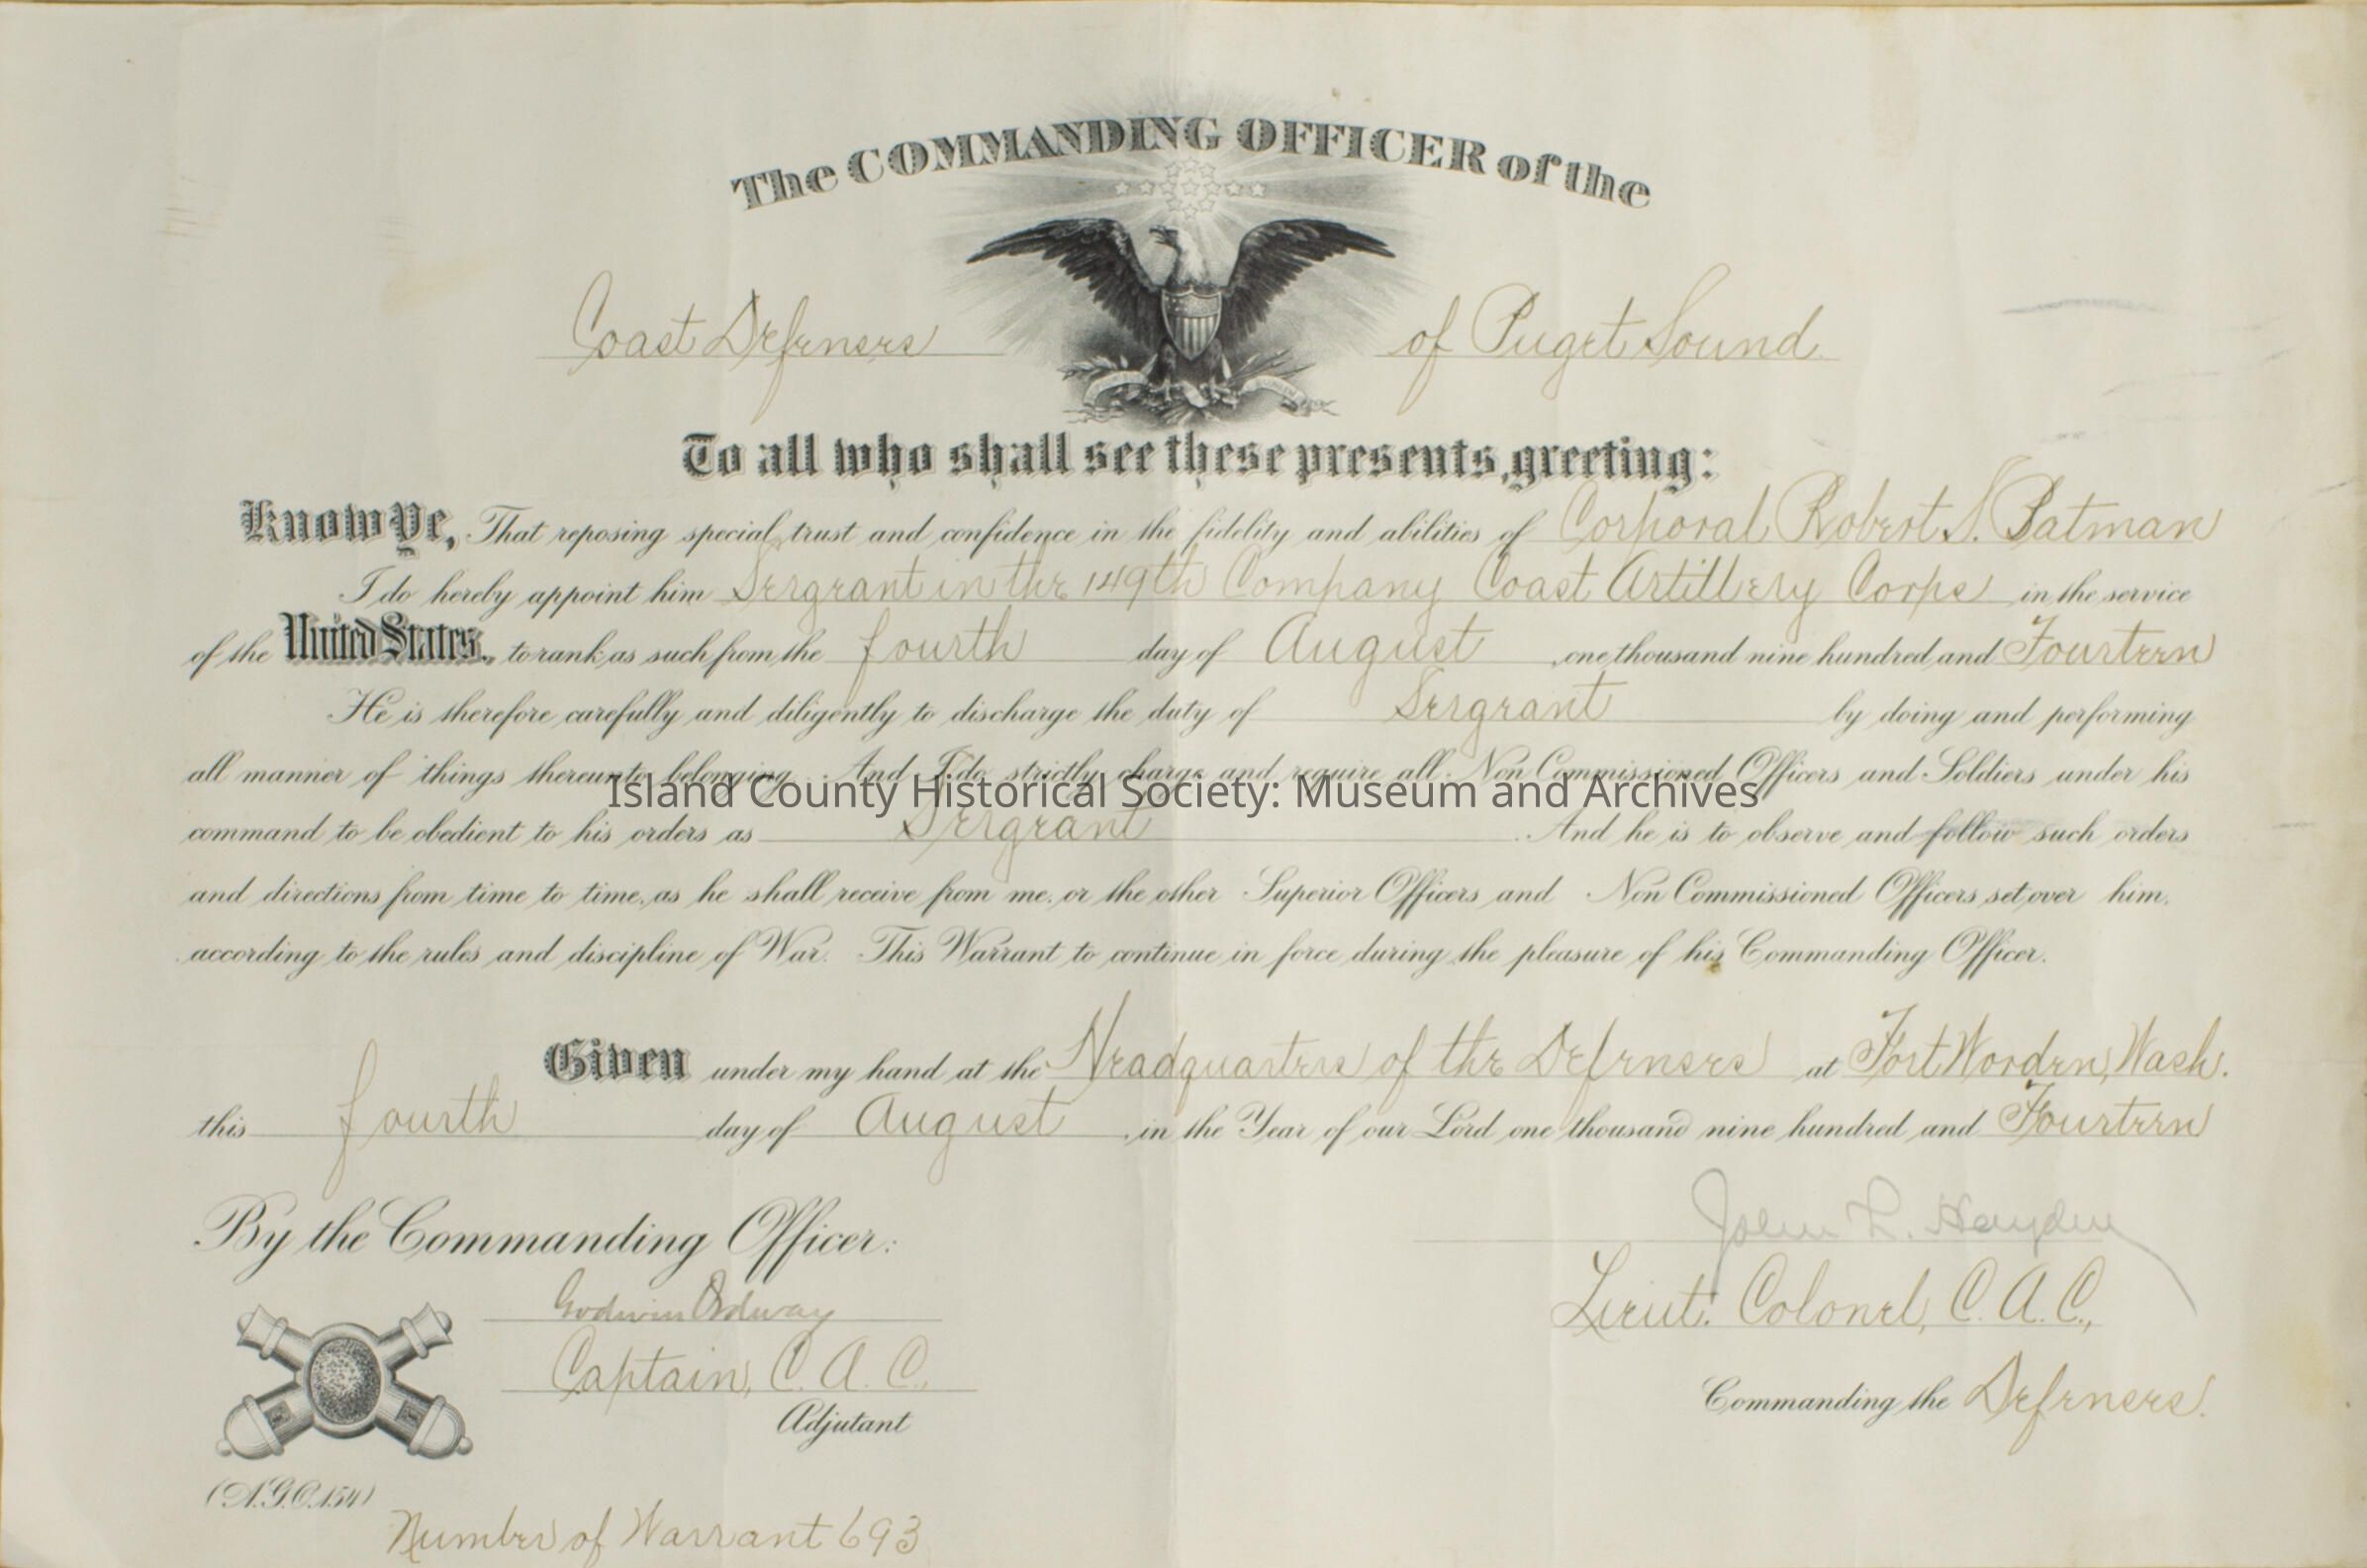 The COMMANDING OFFICER of the
Coast Defenses of Puget Sound.
To all who shall see these presents, greeting:
Know Ye, That reposing special trust and confidence in the fidelity and abilities of Corporal Robert S. Batman
I do hereby appoint him Sergeant in the 149th Company Coast Artillery Corps in the service
of the United States, to rank as such from the fourth day of August, one thousand nine hundred and Fourteen
He is therefore carefully and diligently to discharge the duty of Sergeant by doing and performing
all manner of things thereunto belonging. And I do strictly charge and require all Non Commissioned Officers and Soldiers under his
Island County Historical Society: Museum and Archives
command to be obedient to his orders as Sergeant. And he is to observe and follow such orders
and directions from time to time, as he shall receive from me, or the other Superior Officers and Non Commissioned Officers set over him,
according to the rules and discipline of War. This Warrant to continue in force during the pleasure of his Commanding Officer.
Given under my hand at the Headquarters of the Defenses at Fort Worden, Wash.
this fourth day of August, in the Year of our Lord one thousand nine hundred and Fourteen
John L. Hayden
By the Commanding Officer:
Godwin Ordway
Lieut. Colonel, C. A. C.,
Captain, C. A. C.,
Commanding the Defenses.
Adjutant
(A.G.O. 154)
Number of Warrant 693